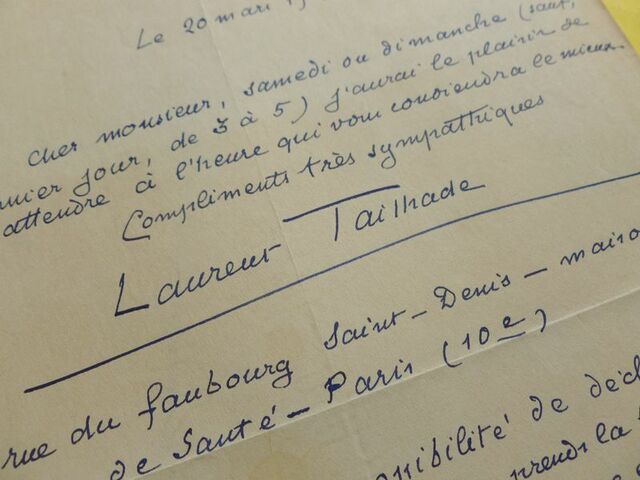 Le 20 mari
Cher monsieur, samedi ou dimanche (sauf,
jour, de 3 à 5) j'aurai le plaisir de
attendre à l'heure qui vous conviendra le mieux
Compliments très sympathiques
Laurent Tailhade
rue du faubourg Saint-Denis - maiso
de Santé - Paris (10e)
de
la